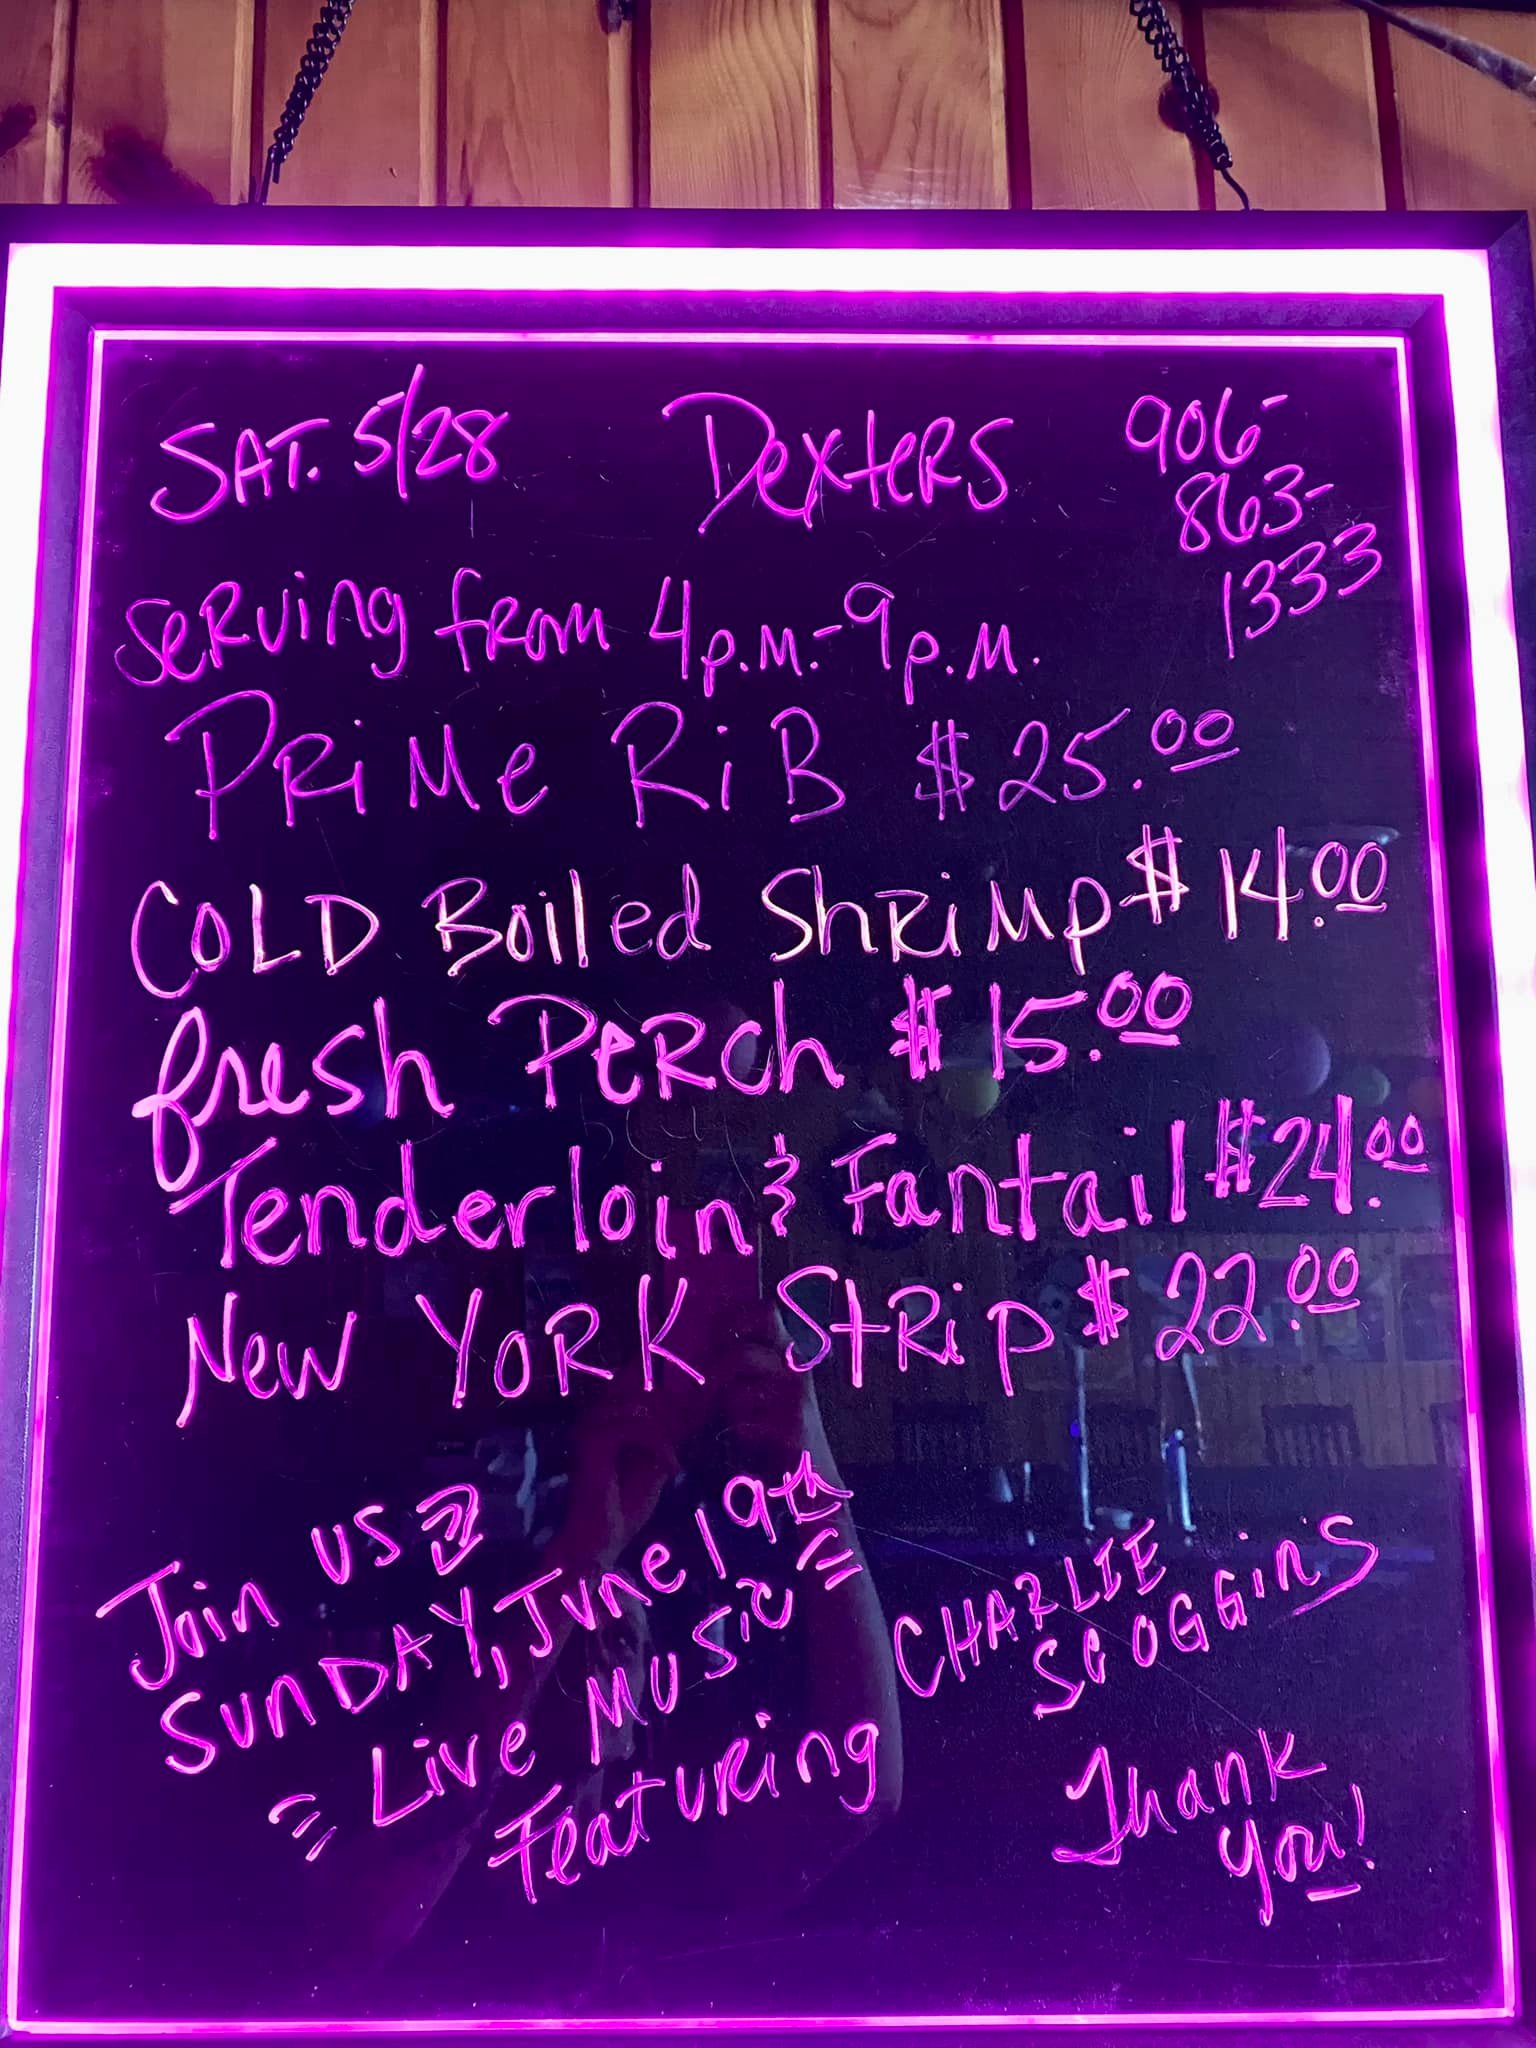 SAT. 5/28 Dexters 906-
863-
1333
Serving from 4p.m.-9p.m.
Prime Rib $25.00
Cold Boiled Shrimp $14.00
fresh Perch $15.00
Tenderloin & Fantail $24.00
New York Strip $22.00
Join us
Sunday, June 19th
Live Music
Featuring
CHARLIE
SCOGGINS
Thank
you!